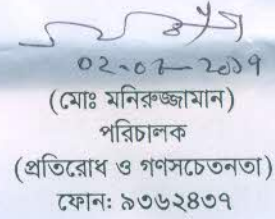 02-07-2019
(মোঃ মনিরুজ্জামান)
পরিচালক
(প্রতিরোধ ও গণসচেতনতা)
ফোন: ৯৩৬২৪৩৭